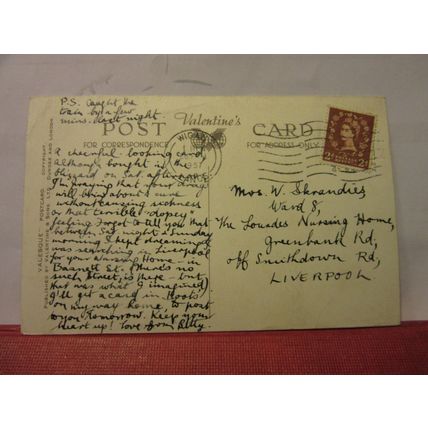 P.S. Caught the
train by a few
mins. last night.
Valentine's
POST CARD
FOR CORRESPONDENCE
FOR ADDRESS ONLY
WIGAN
1957
LANCS.
2d 2d
A cheerful-looking card
although bought in the
blizzard on Sat. afternoon
I'm praying that your drug
will bring about a cure
without causing sickness
or that terrible dropsy
feeling. Forgot to tell you that
between Sat. night & Sunday
morning I kept dreaming I
was searching in Liverpool
for your Nursing Home - in
Basnett St. (There's no
such street, is there - but
that was what I imagined)
I'll get a card in Boots
on my way home to post
to you tomorrow. Keep your
heart up! Love from Betty.
Mrs. W. Skrandies
Ward 8,
The Lourdes Nursing Home,
Greenbank Rd,
off Smithdown Rd,
LIVERPOOL
"VALESQUE" POSTCARD COPYRIGHT.
PUBLISHED BY VALENTINE & SONS LTD. DUNDEE AND LONDON